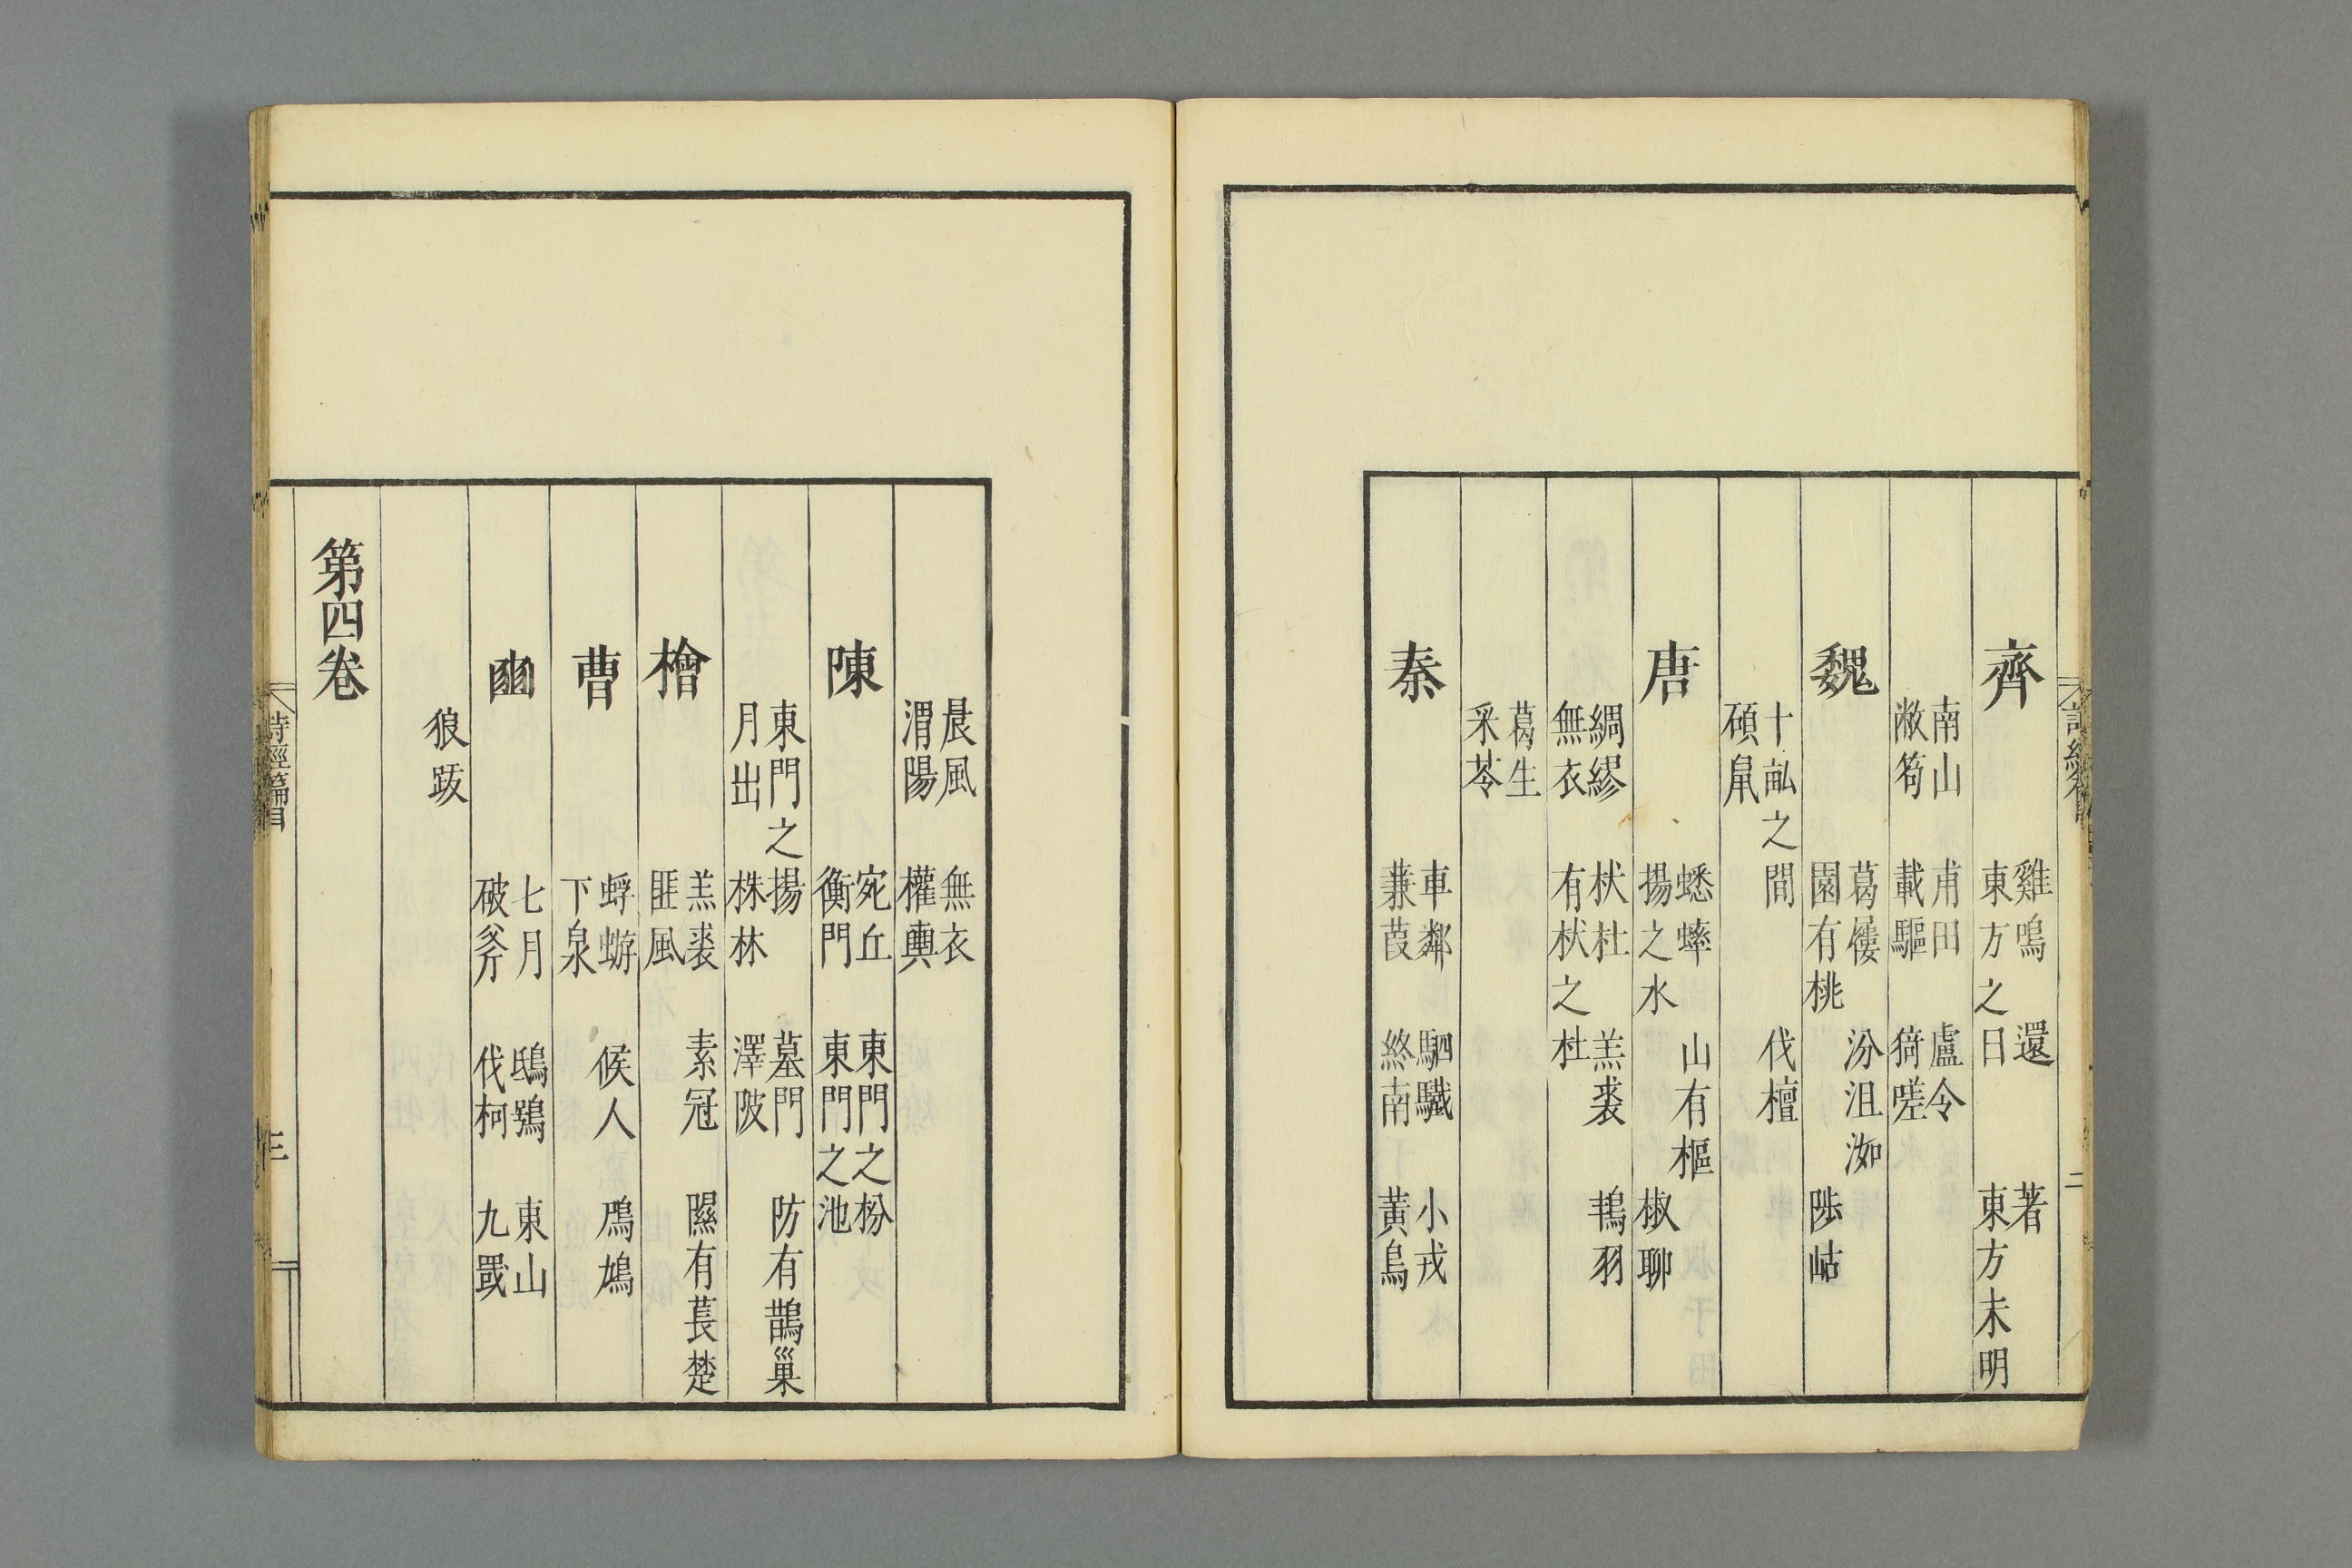 齊
雞鳴 還 著
東方之日 東方未明
南山 甫田 盧令
敝笱 載驅 猗嗟
魏
葛屨 汾沮洳
園有桃 陟岵
十畝之間 伐檀
碩鼠
唐
蟋蟀 山有樞
揚之水 椒聊
綢繆 杕杜 羔裘 鴇羽
無衣 有杕之杜
葛生
采苓
秦
車鄰 駟驖 小戎
蒹葭 終南 黃鳥
晨風 無衣
渭陽 權輿
陳
宛丘 東門之枌
衡門 東門之池
東門之揚 墓門 防有鵲巢
月出 株林 澤陂
檜
羔裘 素冠 隰有萇楚
匪風
曹
蜉蝣 候人 鳲鳩
下泉
豳
七月 鴟鴞 東山
破斧 伐柯 九罭
狼跋
第四卷
詩經篇目 三